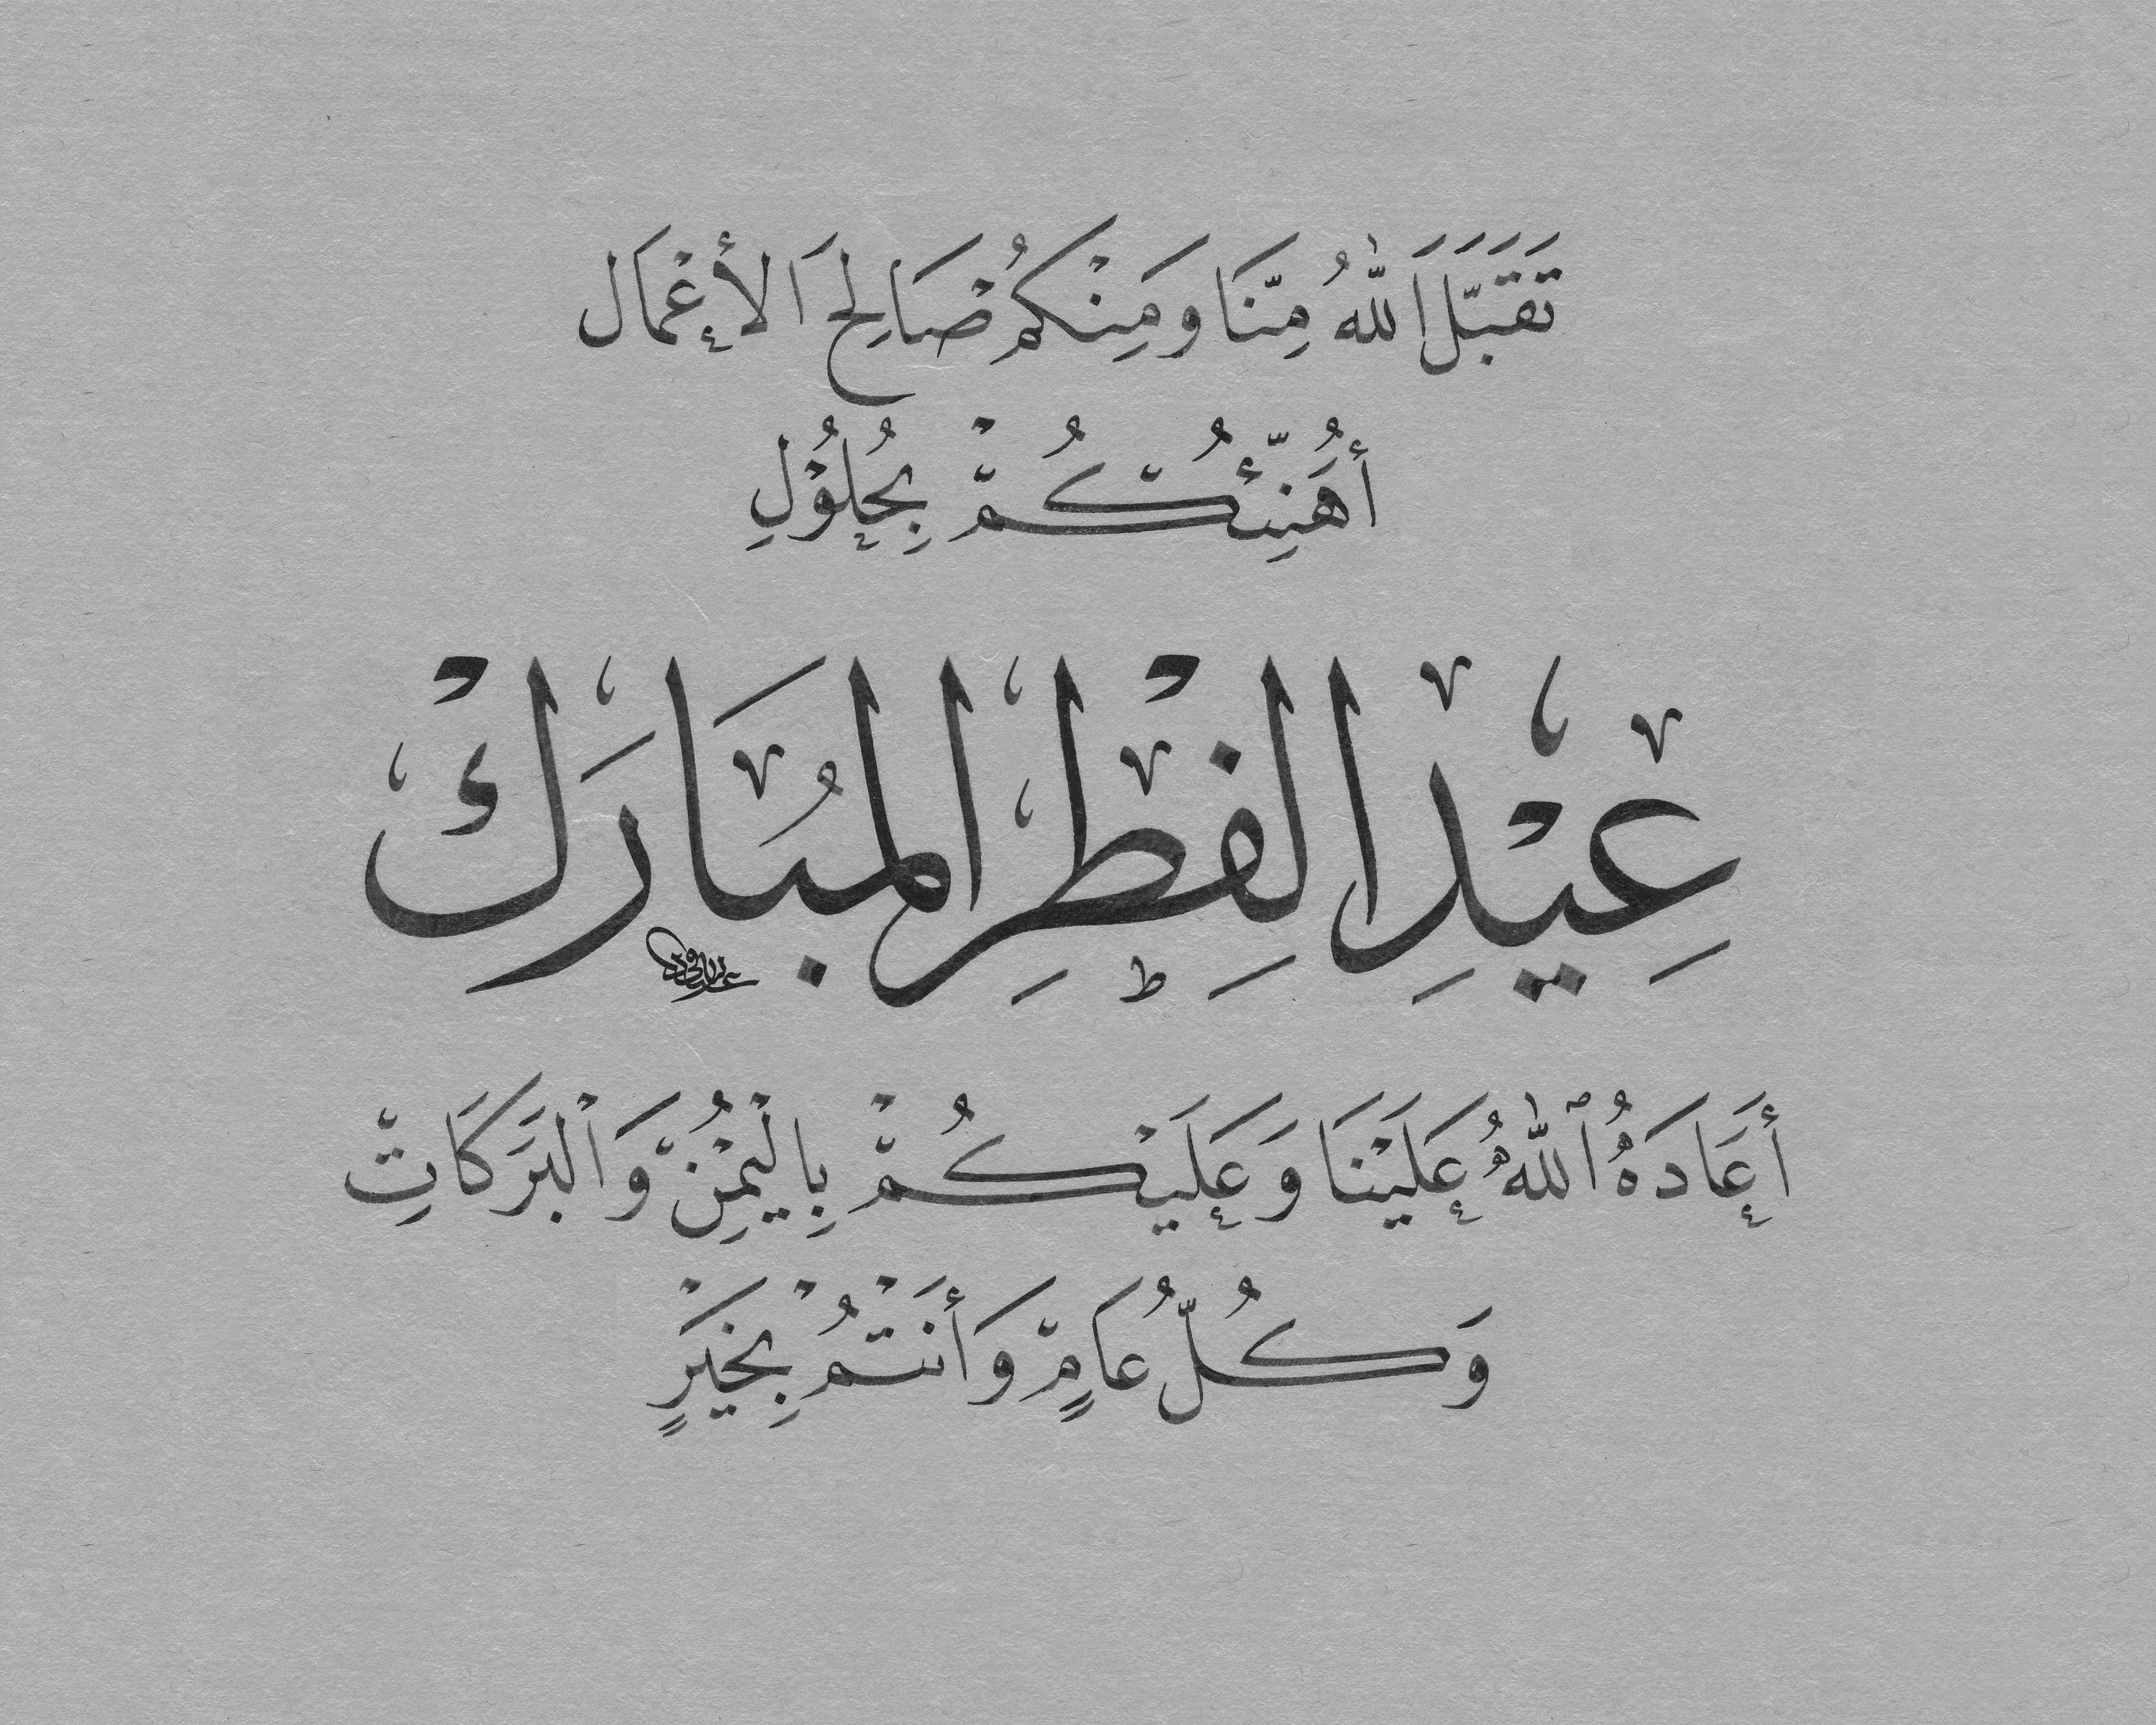 تَقَبَّلَ اَللّٰهُ مِنَّا وَمِنْكُمْ صَالِحَ الأَعْمَال
أُهَنِّئُكُمْ بِحُلُوْلِ
عِيْدِ الْفِطْرِ الْمُبَارَكْ
أَعَادَهُ ٱللّٰهُ عَلَيْنَا وَعَلَيْكُمْ بِالْيُمْنِ وَالْبَرَكَاتِ
وَكُلُّ عَامٍ وَأَنْتُمْ بِخَيْرٍ